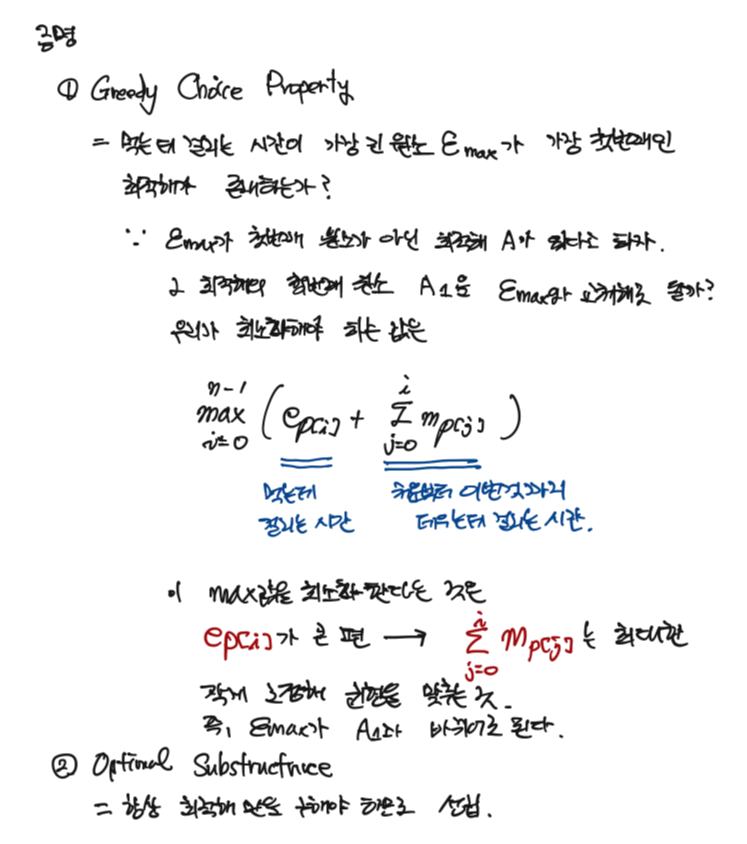 증명
① Greedy Choice Property
= 먹는데 걸리는 시간이 가장 긴 원소 Emax가 가장 첫번째인
최적해가 존재하는가?
∵ Emax가 첫번째 원소가 아닌 최적해 A가 있다고 하자.
그 최적해의 첫번째 원소 A1을 Emax와 교체해도 될까?
우리가 최소화해야 하는 값은
n-1 max i=0 ( e p[i] + i Σ j=0 m p[j] )
먹는데 처음부터 이번것까지
걸리는 시간 데우는데 걸리는 시간.
이 max값을 최소화 한다는 것은
e p[i]가 큰 편 → i Σ j=0 m p[j]는 최대한
작게 조정해 균형을 맞추는 것.
즉, Emax가 A1과 바뀌어도 된다.
② Optimal Substructure
= 항상 최적해 만을 구해야 하므로 성립.